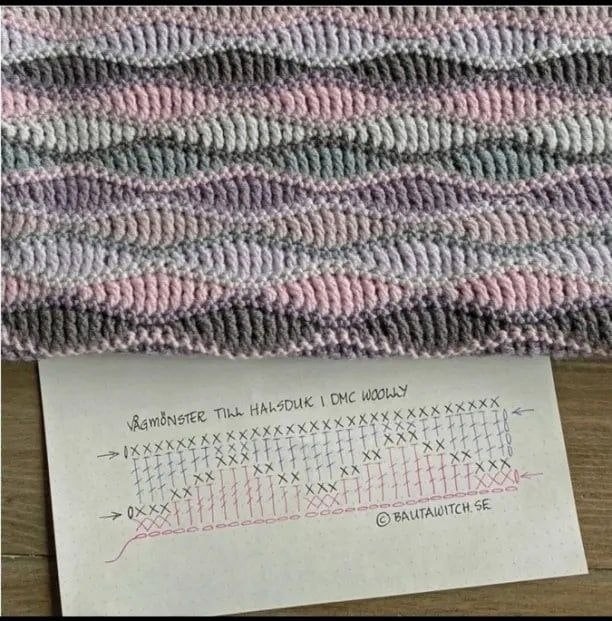 VÅGMÖNSTER TILL HALSDUK I DMC WOOLLY
© BAUTAWITCH.SE